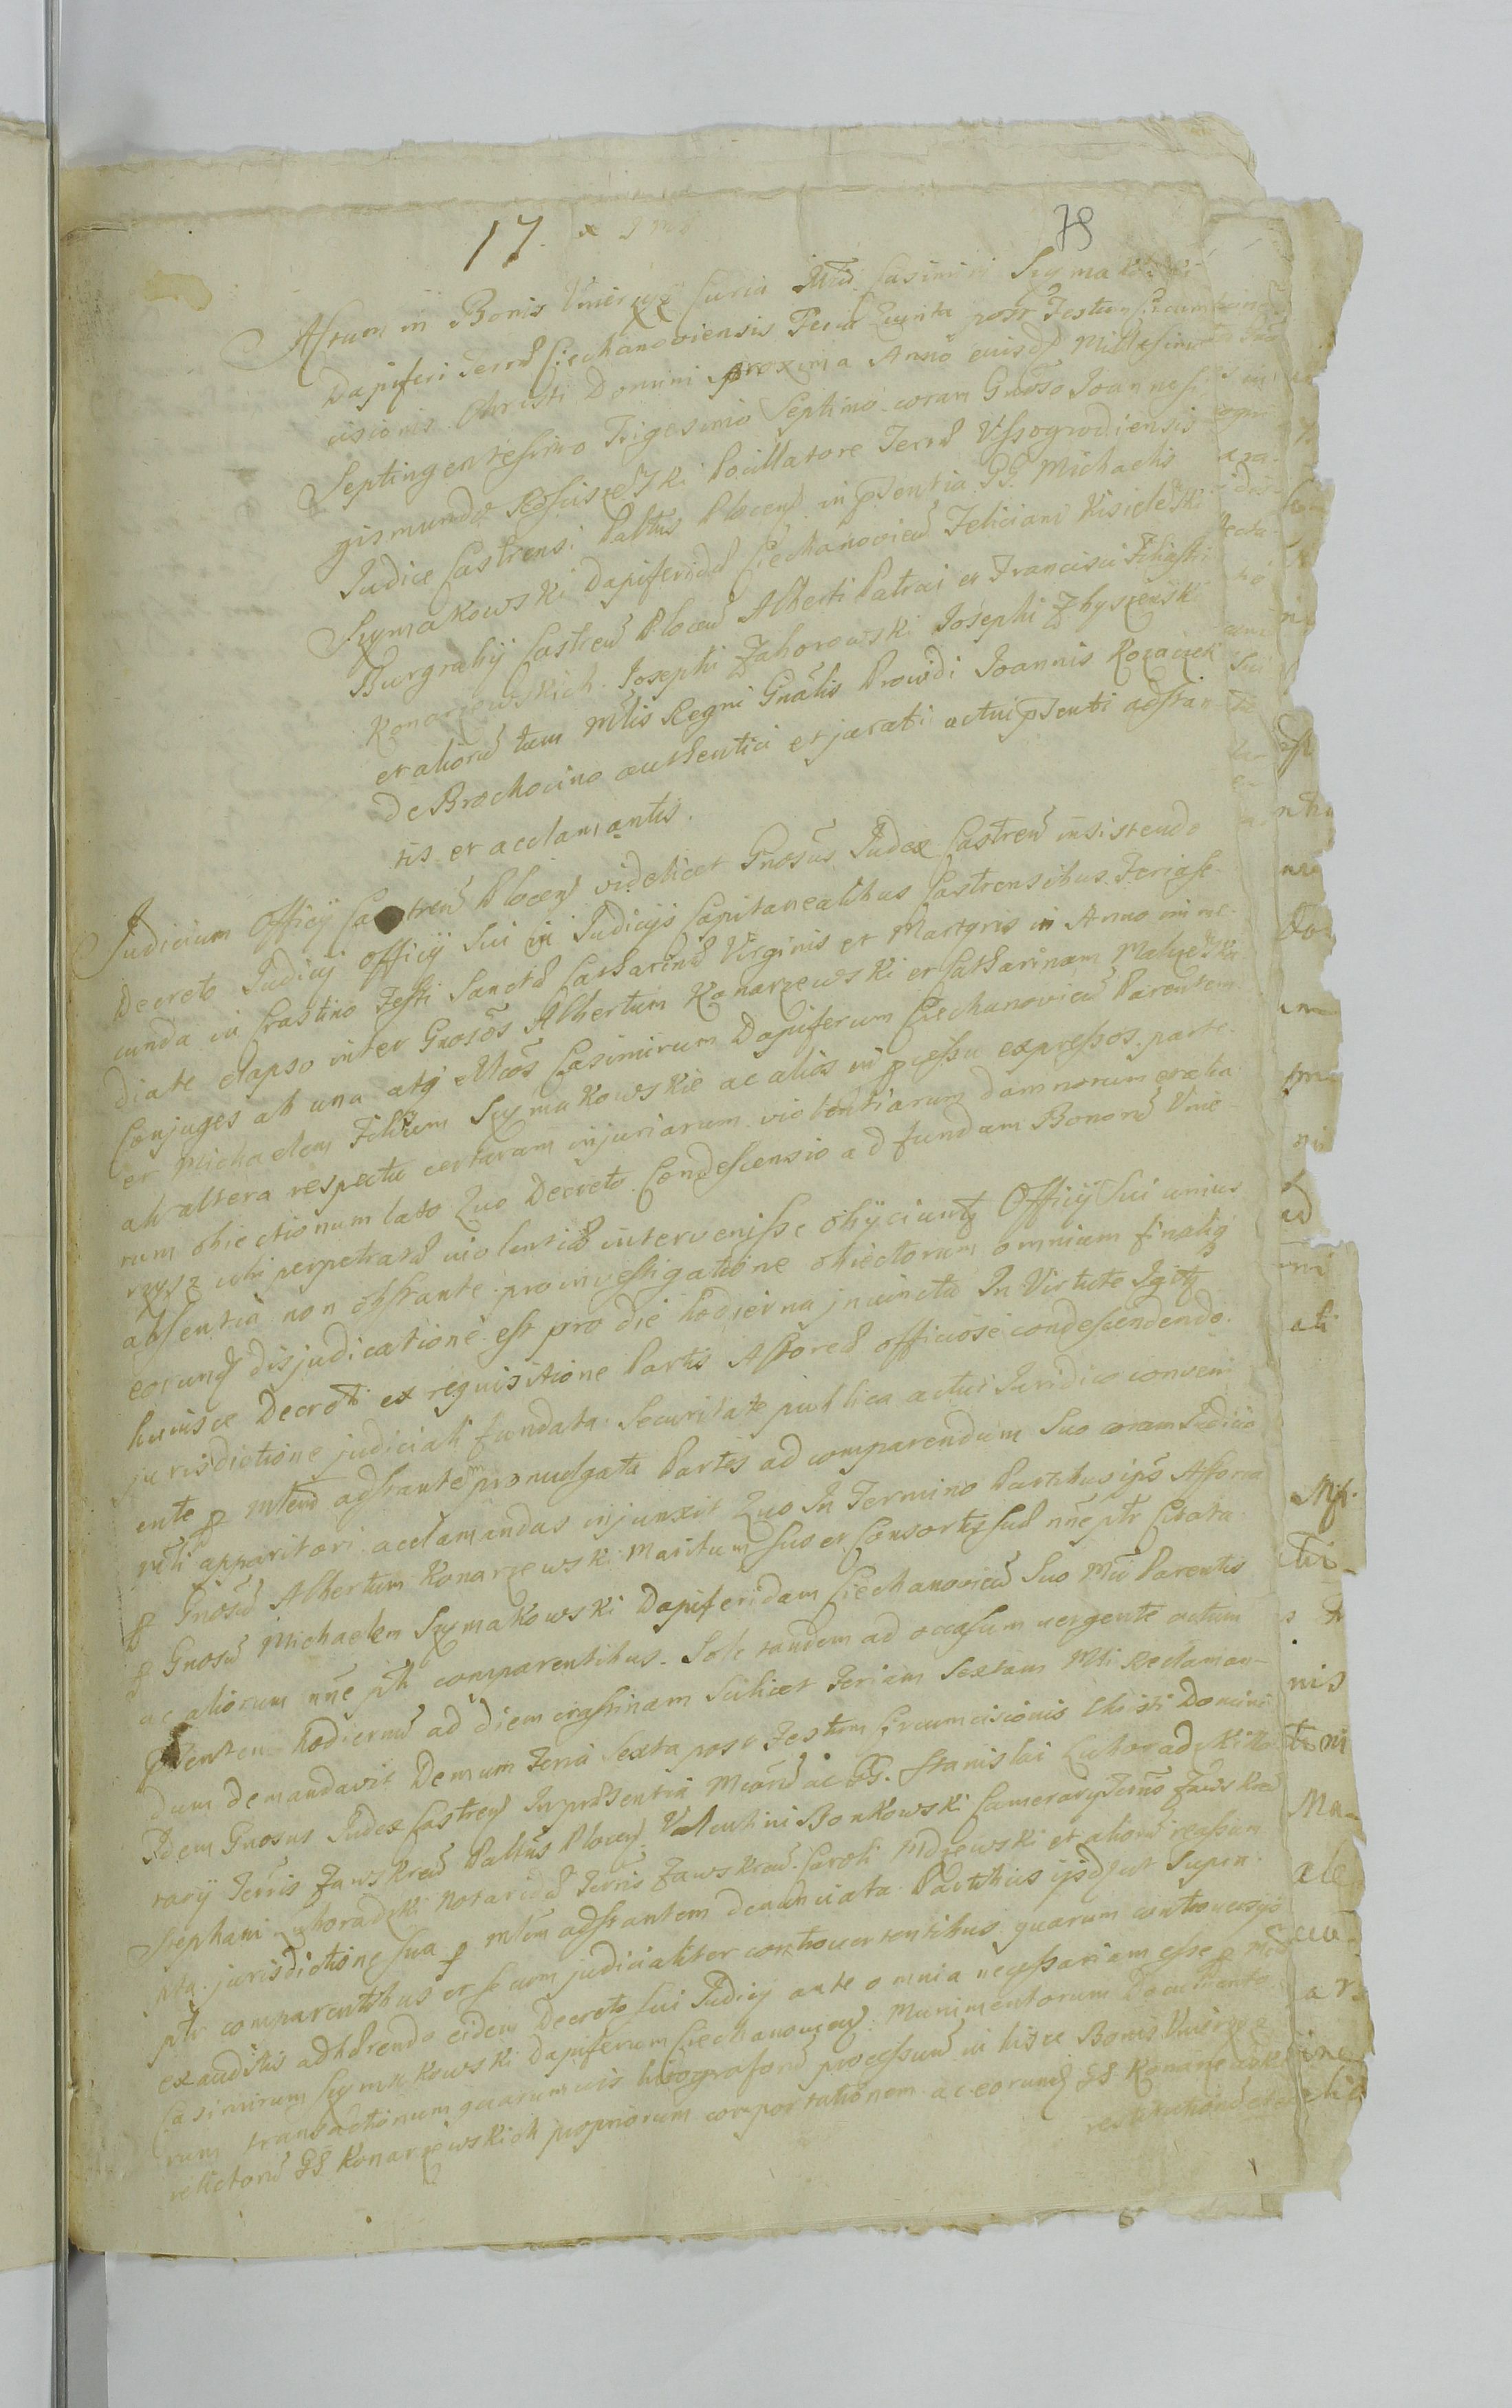 17.
78
Actum in Bonis Unierzysz Curia Casimiri Szymakowski
Dapiferi Terræ Ciechanoviensis Feria Quinta post Festum Circum
cisionis Christi Domini proxima Anno eiusd Millesimo
Septingentesimo Trigesimo Septimo coram Gnoso Joanne Si
gismundo Rosciszewski Pocillatore Terræ Wyssogrodiensis
Judice Castrensi Paltus Plocen in psentia GG. Michaelis
Szymakowski Dapiferidæ Ciechanovien Feliciani Kisielewski
Burgrabij Castren Plocen Alberti Patris et Francisci Filij
Konarzewskich Josephi Zaborowski Josephi Zbyszewski
et aliorũ tum Mlis Regni Gnãlis Providi Joannis Kozaczek
de Brochocino authentici et jurati actui psenti adstan
tis et acclamantis.
Judicium Officij Castren Plocen videlicet Gnosus Judex Castren insistendo
Decreto Judicij Officij Sui in Judicijs Capitanealibus Castrensibus Feria
cunda in Crastino Festi Sanctæ Catharinæ Virginis et Martyris in Anno imme-
diate elapso inter Gnosos Albertum Konarzewski et Catharinam
Conjuges ab una atq Casimirum Dapiferum Ciechanovien Parentem
et Michaelem Filium Szymakowskie ac alios in pcessu expressos parte
ab altera respectu certarum injuriarum violentiarum damnorum
rum obiectionum lato Quo Decreto Condescensio ad fundum Bonorũ Unie-
rzysz ubi perpetratæ violentiæ intervenisse obijciunt Officij Sui unius
absentia non obstante pro investigatione obiectorum omnium finaliq
eorund disjudicatione est pro die hodierna injuncta In Virtute Igitr
huiusce Decreti ex requisitione Partis Actoreæ officiose condescendendo
jurisdictione judiciali fundata Securitate publica actui Juridico conveni
ente p Mlem adstantem promulgata Partes ad comparendum Suo coram Judicio
apparitori acclamandas injunxit Quo In Termino Partibus ipis Actorea
p Gnosũ Albertum Konarzewski Maritum suo et Consortis suæ nne ptr Citata
p Gnosũ Michaelem Szymakowski Dapiferidam Ciechanovien Suo Parentis
ac aliorum nne ptr comparentibus. Sole tandem ad occasum vergente actum
psentem hodiernũ ad diem crastinam Scilicet Feriam Sextam Mli reclaman-
dum demandavit Demum Feria Sexta post Festum Circumcisionis Christi Domini
Idem Gnosus Judex Castren In præsentia ac GG. Stanislai
rarij Terris Zawskren Paltus Plocen Valentini Bonkowski Camerarij Terris Zawskren
Stephani Notaridæ Terris Zawskren Caroli et aliorũ reassum
pta jurisdictione sua p Mlem adstantem denunciata Partibus ijsd ut Supra
ptr comparentibus et secum judicialiter controvertentibus quarum controversijs
exauditis adhærendo eidem Decreto Sui Judicij ante omnia necessariam esse p
Casimirum Szymakowski Dapiferum Ciechanovien Munimentorum
rum transactionum quarumvis processuũ in hisce Bonis Unierzysz
relictorũ GG Konarzewskich propriorum comportationem ac eorund GG Konarzewskich